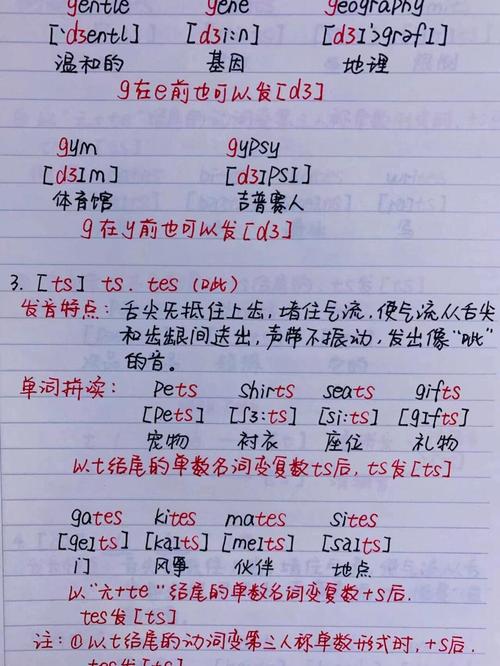 gentle gene geography
[ˈdʒentl] [dʒi:n] [dʒɪˈɔgrəfɪ]
温和的 基因 地理
g在e前也可以发[dʒ]
gym gypsy
[dʒɪm] [dʒɪPSI]
体育馆 吉普赛人
g在y前也可以发[dʒ]
3. [ts] ts. tes (呲)
发音特点: 舌尖先抵住上齿, 堵住气流, 使气流从舌尖
和齿龈间送出, 声带不振动, 发出像“呲”
的音。
单词拼读: pets shirts seats gifts
[pets] [ʃɜ:ts] [si:ts] [gɪfts]
宠物 衬衣 座位 礼物
以t结尾的单数名词变复数ts后, ts发[ts]
gates kites mates sites
[geɪts] [kaɪts] [meɪts] [saɪts]
门 风筝 伙伴 地点
以“元+te”结尾的单数名词变复数+s后.
tes发[ts]
注: ①以t结尾的动词变第三人称单数形式时, +s后.
tes发[ts]